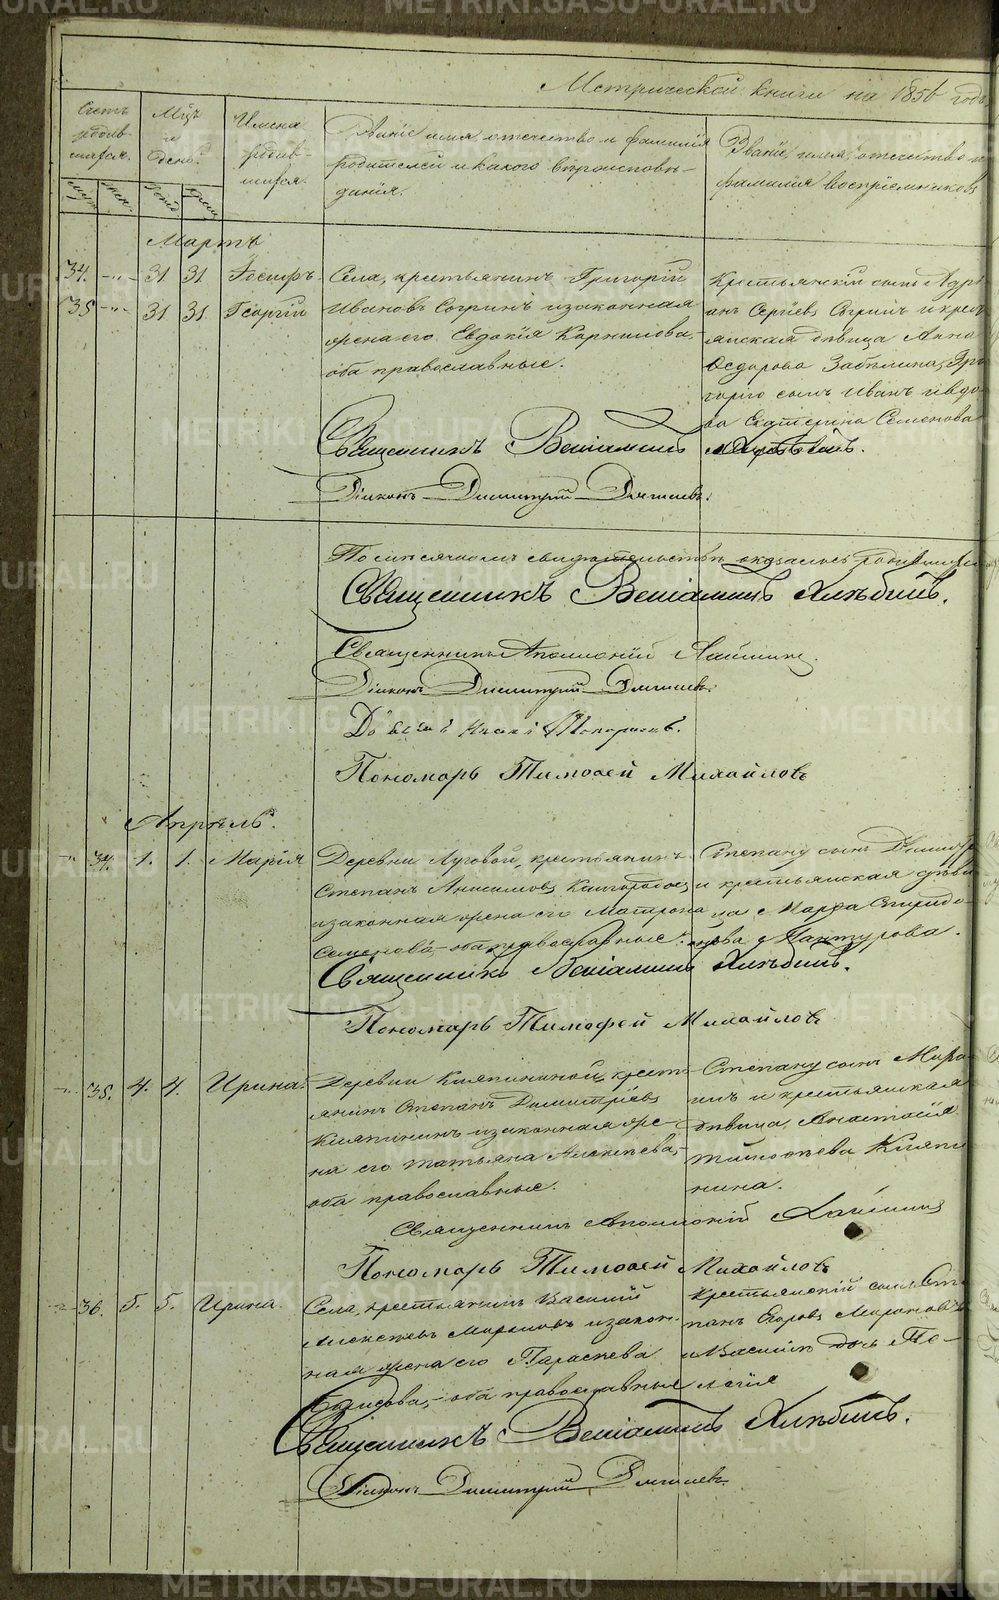 Метрической книги на 1856 годъ
Счетъ родив-шихся.
муж.
жен.
Мцъ и день.
рожд.
крещ.
Имена родив-шихся.
Званіе, имя, отчество и фамилія
родителей и какого вѣроисповѣ-
данія.
Званіе, имя, отчество и
фамилія воспріемниковъ
Мартъ
34. 31 31 Іосифъ
35 31 31. Георгій
Села, крестьянинъ Григорій
Ивановъ и законная
жена его Евдокія Корнилова,
оба православные.
Крестьянскій сынъ Адрі-
анъ Сергѣевъ и крест
янская дѣвица Анна
Ѳедорова Забѣлина, Гри-
горіо сынъ Иванъ и вдо-
ва Екатерина Семенова
Священникъ Веніаминъ Хлѣбинъ.
Діаконъ Димитрій
По мѣсячномъ свидѣтельствѣ оказалось
Священникъ Веніаминъ Хлѣбинъ.
Священникъ Аполлоній
Діаконъ Димитрій
Пономарь Тимоѳей Михайловъ
Апрѣль.
34. 1. 1. Марія
Деревни Луговой, крестьянинъ
Степанъ Анисимовъ Кайгородовъ
и законная жена его Матрона
Семенова, оба православные.
Степану сынъ
и крестьянская дѣви
ца Марѳа Спиридо-
нова
Священникъ Веніаминъ Хлѣбинъ.
Пономарь Тимофей Михайловъ
35. 4. 4. Ирина.
Деревни Кляпининой, крест-
янинъ Степанъ Димитріевъ
Кляпининъ и законная же-
на его Татьяна Алексѣева,
оба православные.
Степану сынъ Миро-
нъ и крестьянская
дѣвица Анастасія
Тимоѳеева Кляпи-
нина.
Священникъ Аполлоній
Пономарь Тимоѳей Михайловъ
36. 5. 5. Ирина.
Села, крестьянинъ Василій
Алексѣевъ Мироновъ и закон-
ная жена его Параскева
Борисова, оба православные
Крестьянскій сынъ Сте-
панъ Егоровъ Мироновъ
и Василію дочь Пе-
лагія
Священникъ Веніаминъ Хлѣбинъ.
Діаконъ Димитрій
METRIKI.GASO-URAL.RU